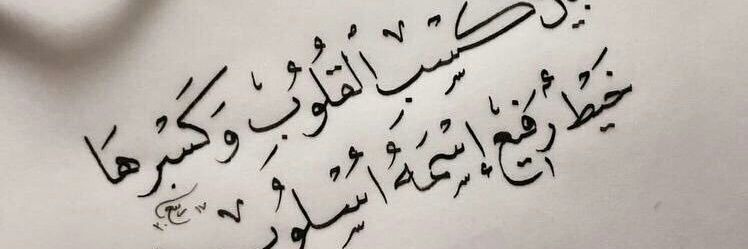 بين كَسْبِ القُلُوبِ وَكَسْرِهَا
خَيْطٌ رَفِيعٌ إِسْمُهُ أُسْلُوب